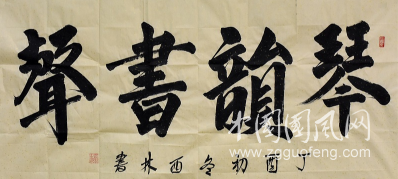 琴韻書聲
丁酉初冬西林書
中国国风网
www.zgguofeng.com